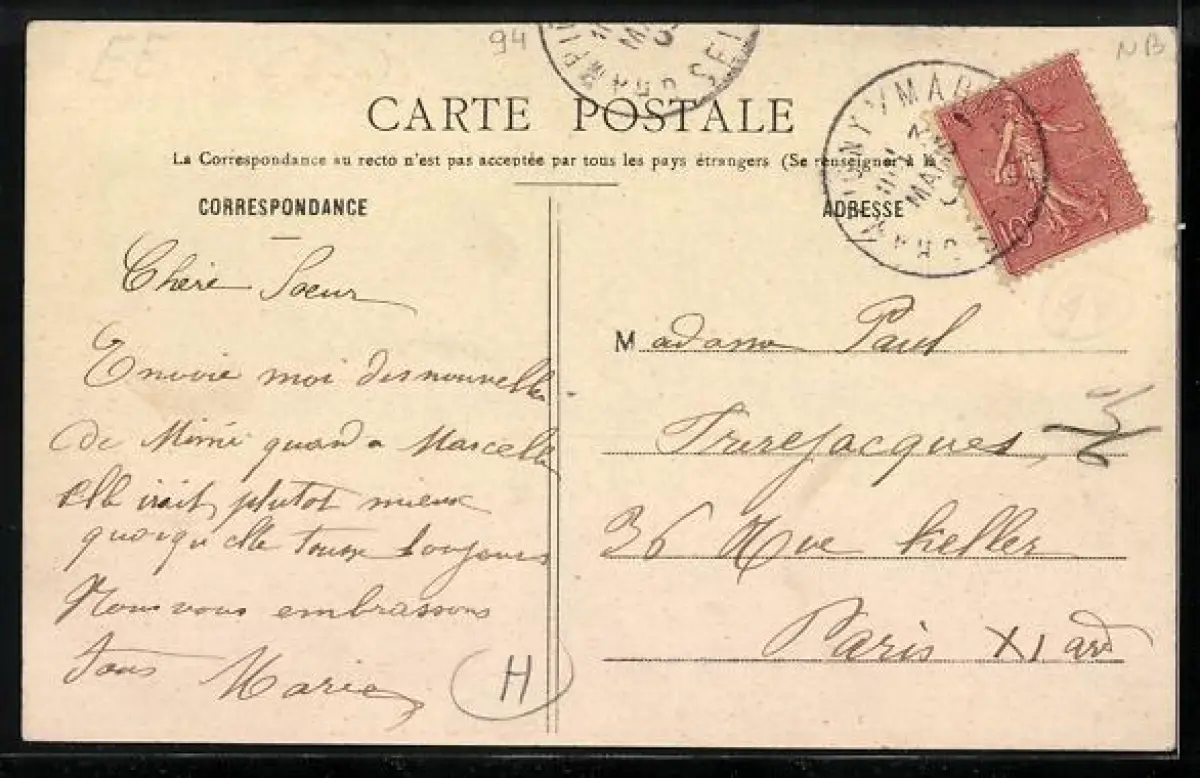 94
NB
CARTE POSTALE
La Correspondance au recto n'est pas acceptée par tous les pays étrangers (Se renseigner à la
CORRESPONDANCE
ADRESSE
10
Chère Soeur
Envoie moi des nouvelles
de Mimi quand a Marcelle
elle irait plutot mieux
quoiqu'elle tousse toujours
Nous vous embrassons
tous Marie
H
Madame Paul
Frerejacques
36 Rue Keller
Paris XI ard